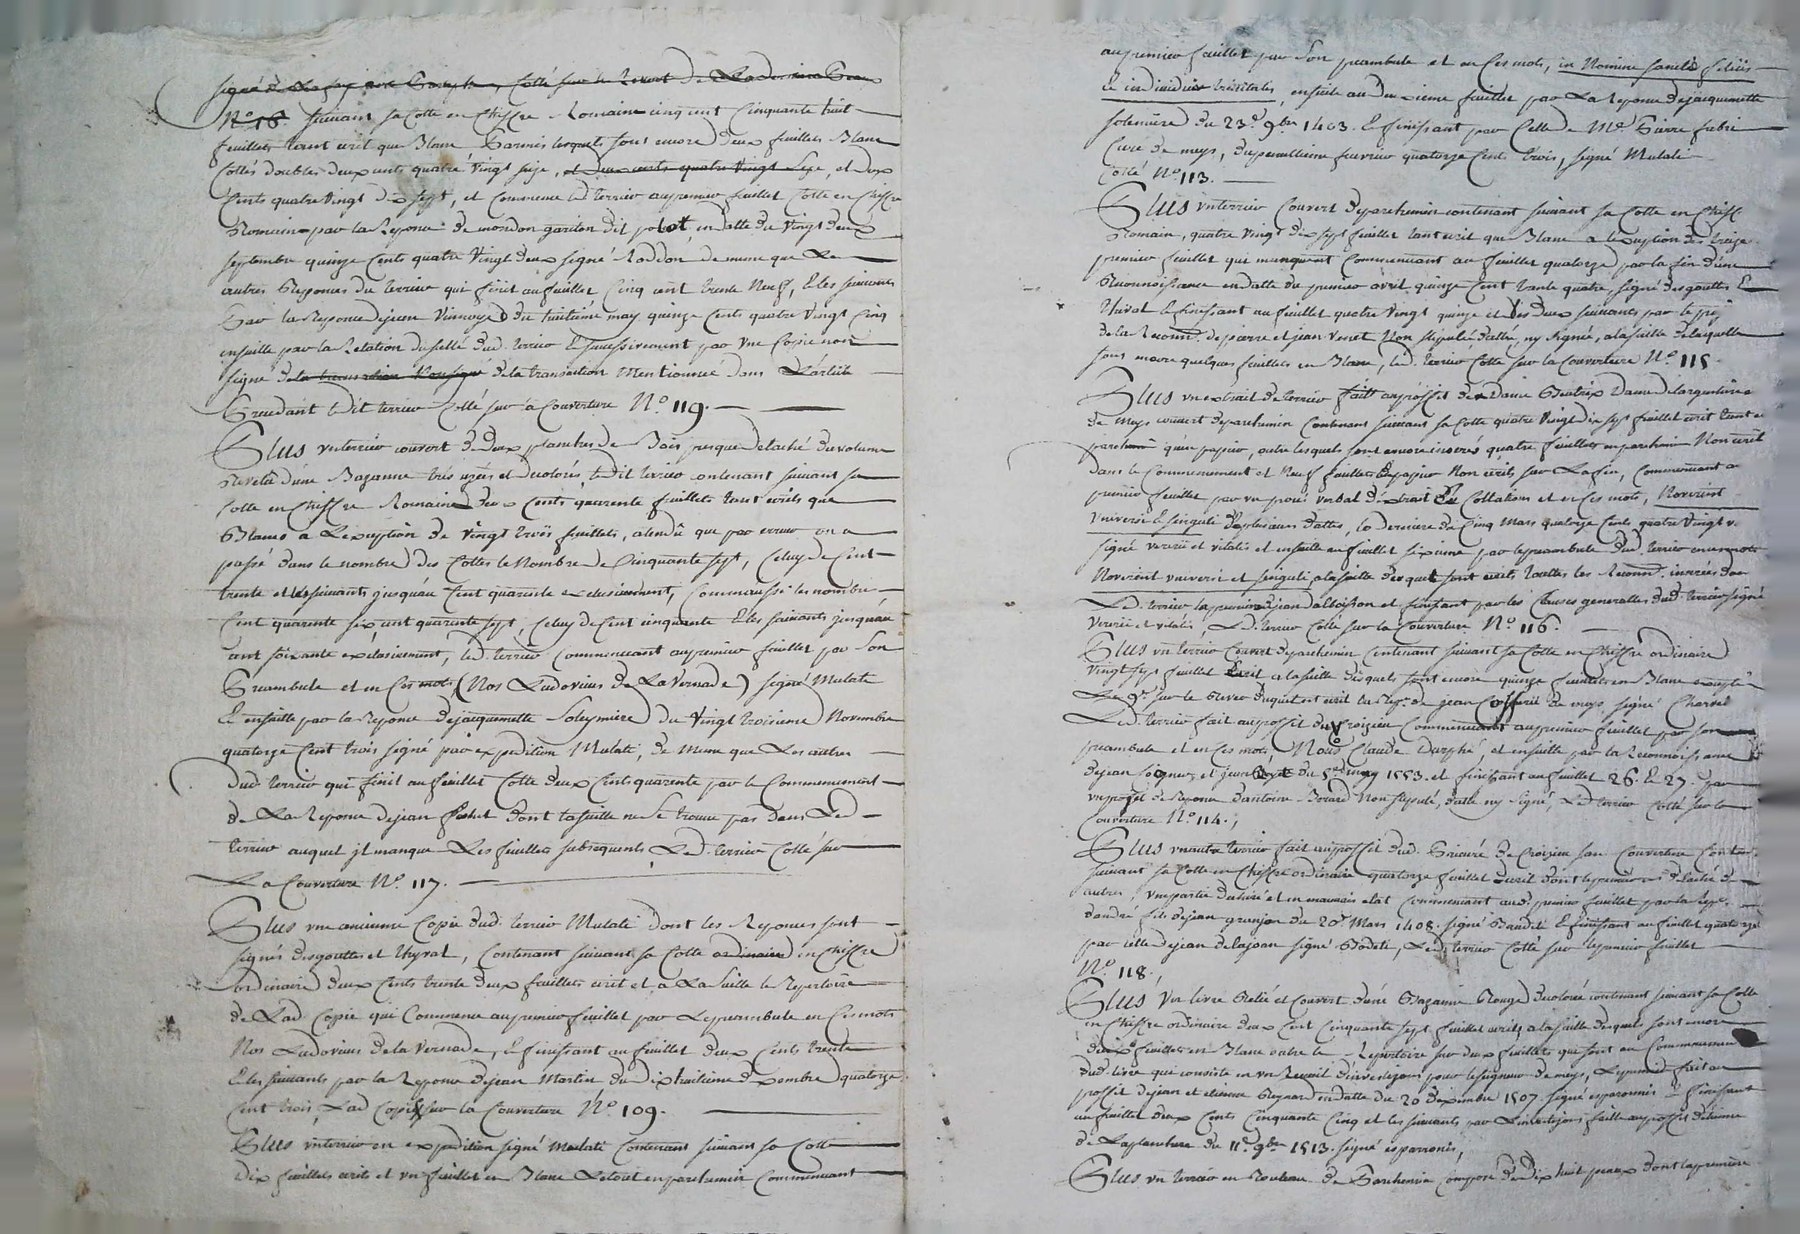 N° 16. suivant sa Cotte en Chiffre Romain cinq cent Cinquante huit
feuillets tant ecrit que Blanc Parmis lesquels sont encore deux feuillets Blanc
Cottés doubles deux cents quatre vingt seize, et deux cents quatre vingt seize, et deux
Cents quatre vingt dix sept, et Commence led terrier au premier feuillet Cotte en Chiffre
Romain par la Reponce de mondon garilon dit potot, en datte du vingt deux
septembre quinze Cents quatre vingt deux signé Roddon de meme que Les
autres Reponces du terrier qui finit au feuillet Cinq cent trente Neuf, Et les suivants
Par la Reponce de jean Vinnoys du huitieme may quinze Cents quatre vingt Cinq
ensuitte par la Relation du sellé dud. terrier Et successivement par une Copie non
signé de la transaction Mentionnée dans L'article
Precedant ledit terrier Cotté sur sa Couverture N° 119.
Plus un terrier couvert de deux planches de Bois presque detaché du volume
Revetû d'une Bazanne très uzée et decolorée, ledit terrier contenant suivant sa
Cotte en Chiffre Romain deux Cents quarente feuillets tant ecrits que
Blancs a L'exception de vingt trois feuillets, atendû que par erreur on a
passé dans le nombre des Cottes le Nombre de Cinquante sept, Celuy de Cent
trente et les suivants jusqu'au Cent quarente exclusivement, Comme aussi les nombre
Cent quarente six, cent quarente sept, Celuy de Cent cinquante Et les suivants jusqu'au
cent soixante exclusivement, led. terrier Commencant au premier feuillet par son
Preambule et en Ces mots (Nos Ludovicus de La Vernade) signé Mulati
Et ensuitte par la Reponce de jacquemette Soleymiere du vingt troisieme Novembre
quatorze Cent trois signé par expedition Mulati, de Meme que Les autres
Dud. terrier qui finit au feuillet Cotte deux Cents quarente par le Commencement
de La Reponce de jean fochet dont la suitte ne se trouve pas dans Led
terrier auquel jl manque Les feuillets subsequents Led. terrier Cotté sur
La Couverture N° 117.
Plus une ancienne Copie dud. terrier Mulati dont les Reponces sont
signés Desgouttes et Thyral, Contenant suivant sa Cotte ordinaire en Chiffre
ordinaire deux Cents trente deux feuillets ecrit et a La suitte le Repertoire
de Lad. Copie qui Commence au premier feuillet par Le preambule en Ces mots
Nos Ludovicus de la Vernade, Et finissant au feuillet deux Cents trente
Et les suivants par la Reponce de jean Martin du dix huitieme decembre quatorze
Cent trois, Lad Copie sur la Couverture N° 109.
Plus un terrier en expedition signé Mulati Contenant suivant sa Cotte
Dix feuillets ecrits et un feuillet en Blanc Letout en parchemin Commencant
au premier feuillet par Son preambule et en Ces mots, in Nomine sancte
et individue trinitatis, ensuite au deuxieme feuillet par La Reponce de jacquemette
soleniere du 23e 9bre 1403. Et finissant par Celle de Me. Pierre fabri
Curé de meys, du penultieme fevrier quatorze Cent trois, signé Mulati
Cotté N° 113.
Plus un terrier Couvert de parchemin contenant suivant sa Cotte en Chiffre
Romain, quatre vingt dix sept feuillet tant ecrit que Blanc a l'exception des treize
premier feuillet qui manquent Commencant au feuillet quatorze par la fin d'une
Reconnoissance en datte du premier avril quinze Cent trente quatre, signé desgouttes Et
Thiral Et finissant au feuillet quatre vingt quinze et Les deux suivants par le proj
de la Reconn. de pierre et jean Verset Non stipulé datté, ny signée, a la suitte de laquelle
sont encore quelques feuillets en Blanc, led. terrier Cotte sur la Couverture N° 115.
Plus un extrait de terrier fait au proffit de Dame Beatrix Dame de largentiere
de Meys couvert de parchemin Contenant suivant sa Cotte quatre vingt dix sept feuillet ecrit tant en
parchemin qu'en papier, outre lesquels sont encore inserés quatre feuillets en parchemin Non ecrit
dans le Commencement et Neuf feuillets de papier Non ecrits sur La fin, Commencant au
premier feuillet par un procé verbal d'extrait Et Collation et en Ces mots, Noverint
universi Et singuli de plusieurs dattes, la derniere du Cinq Mars quatorze Cents quatre vingt
signé et vitalis et ensuitte au feuillet sixieme par le preambule dud. terrier en ces mots
Noverint universi et singuli a la suitte desquels sont ecrits touttes les Reconn. inserées dans
Led. terrier la premiere de jean alboisson et finissant par les Clauses generalles dud. terrier signé
et vitalis, Led. terrier Cotté sur la Couverture N° 116.
Plus un terrier Couvert de parchemin Contenant suivant sa Cotte en Chiffre ordinaire
vingt sept feuillet Ecrit a la suitte desquels sont encore quinze feuillets en Blanc excepté
Le 9e sur le Revers duquel est ecrit la Rep. de jean de meys signé Charvel
Led. terrier fait au proffit du Croizieu Commencant au premier feuillet par son
preambule et en Ces mots Nous Claude Durphé et ensuitte par la Reconnoissance
de jean et du 5e may 1553. et finissant au feuillet 26. Et 27. par
un projet de Reponce d'antoine Berard Non stipulé, datté ny signé, Led terrier Cotté sur la
Couverture N° 114.,
Plus un autre terrier fait au proffit dud. Prieuré de Croizieu san Couverture Conten.
suivant sa Cotte en Chiffre ordinaire quatorze feuillet Ecrit dont le premier detaché des
autres, une partie dechiré et en mauvais etat Commencant aud. premier feuillet par la Rep.
d'andré fils de jean granjon du 20e Mars 1408. signé Et finissant au feuillet quatorze
par celle de jean de lajoan signé Led. terrier Cotté sur le premier feuillet
N° 118.,
Plus un livre Relié et Couvert d'une Bazanne Rouge decolorée contenant suivant sa Cotte
en Chiffre ordinaire deux Cent Cinquante sept feuillet ecrits a la suitte desquels sont encore
deux feuillets en Blanc outre le Repertoire sur deux feuillets qui sont au Commencement
dud. livre qui consiste en un Recueil d'investizons pour le seigneur de meys, Le premier fait au
proffit de jean et etienne Reynard en datte du 20 Decembre 1507. signé esparronis Et finissant
au feuillet deux Cents Cinquante Cinq et les suivants par L'investizon faitte au proffit d'etienne
de Laplanchere du 11e 9bre 1513. signé esparronis,
Plus un terrier en Rouleau de Parchemin Composé de Dix huit peaux dont la premiere